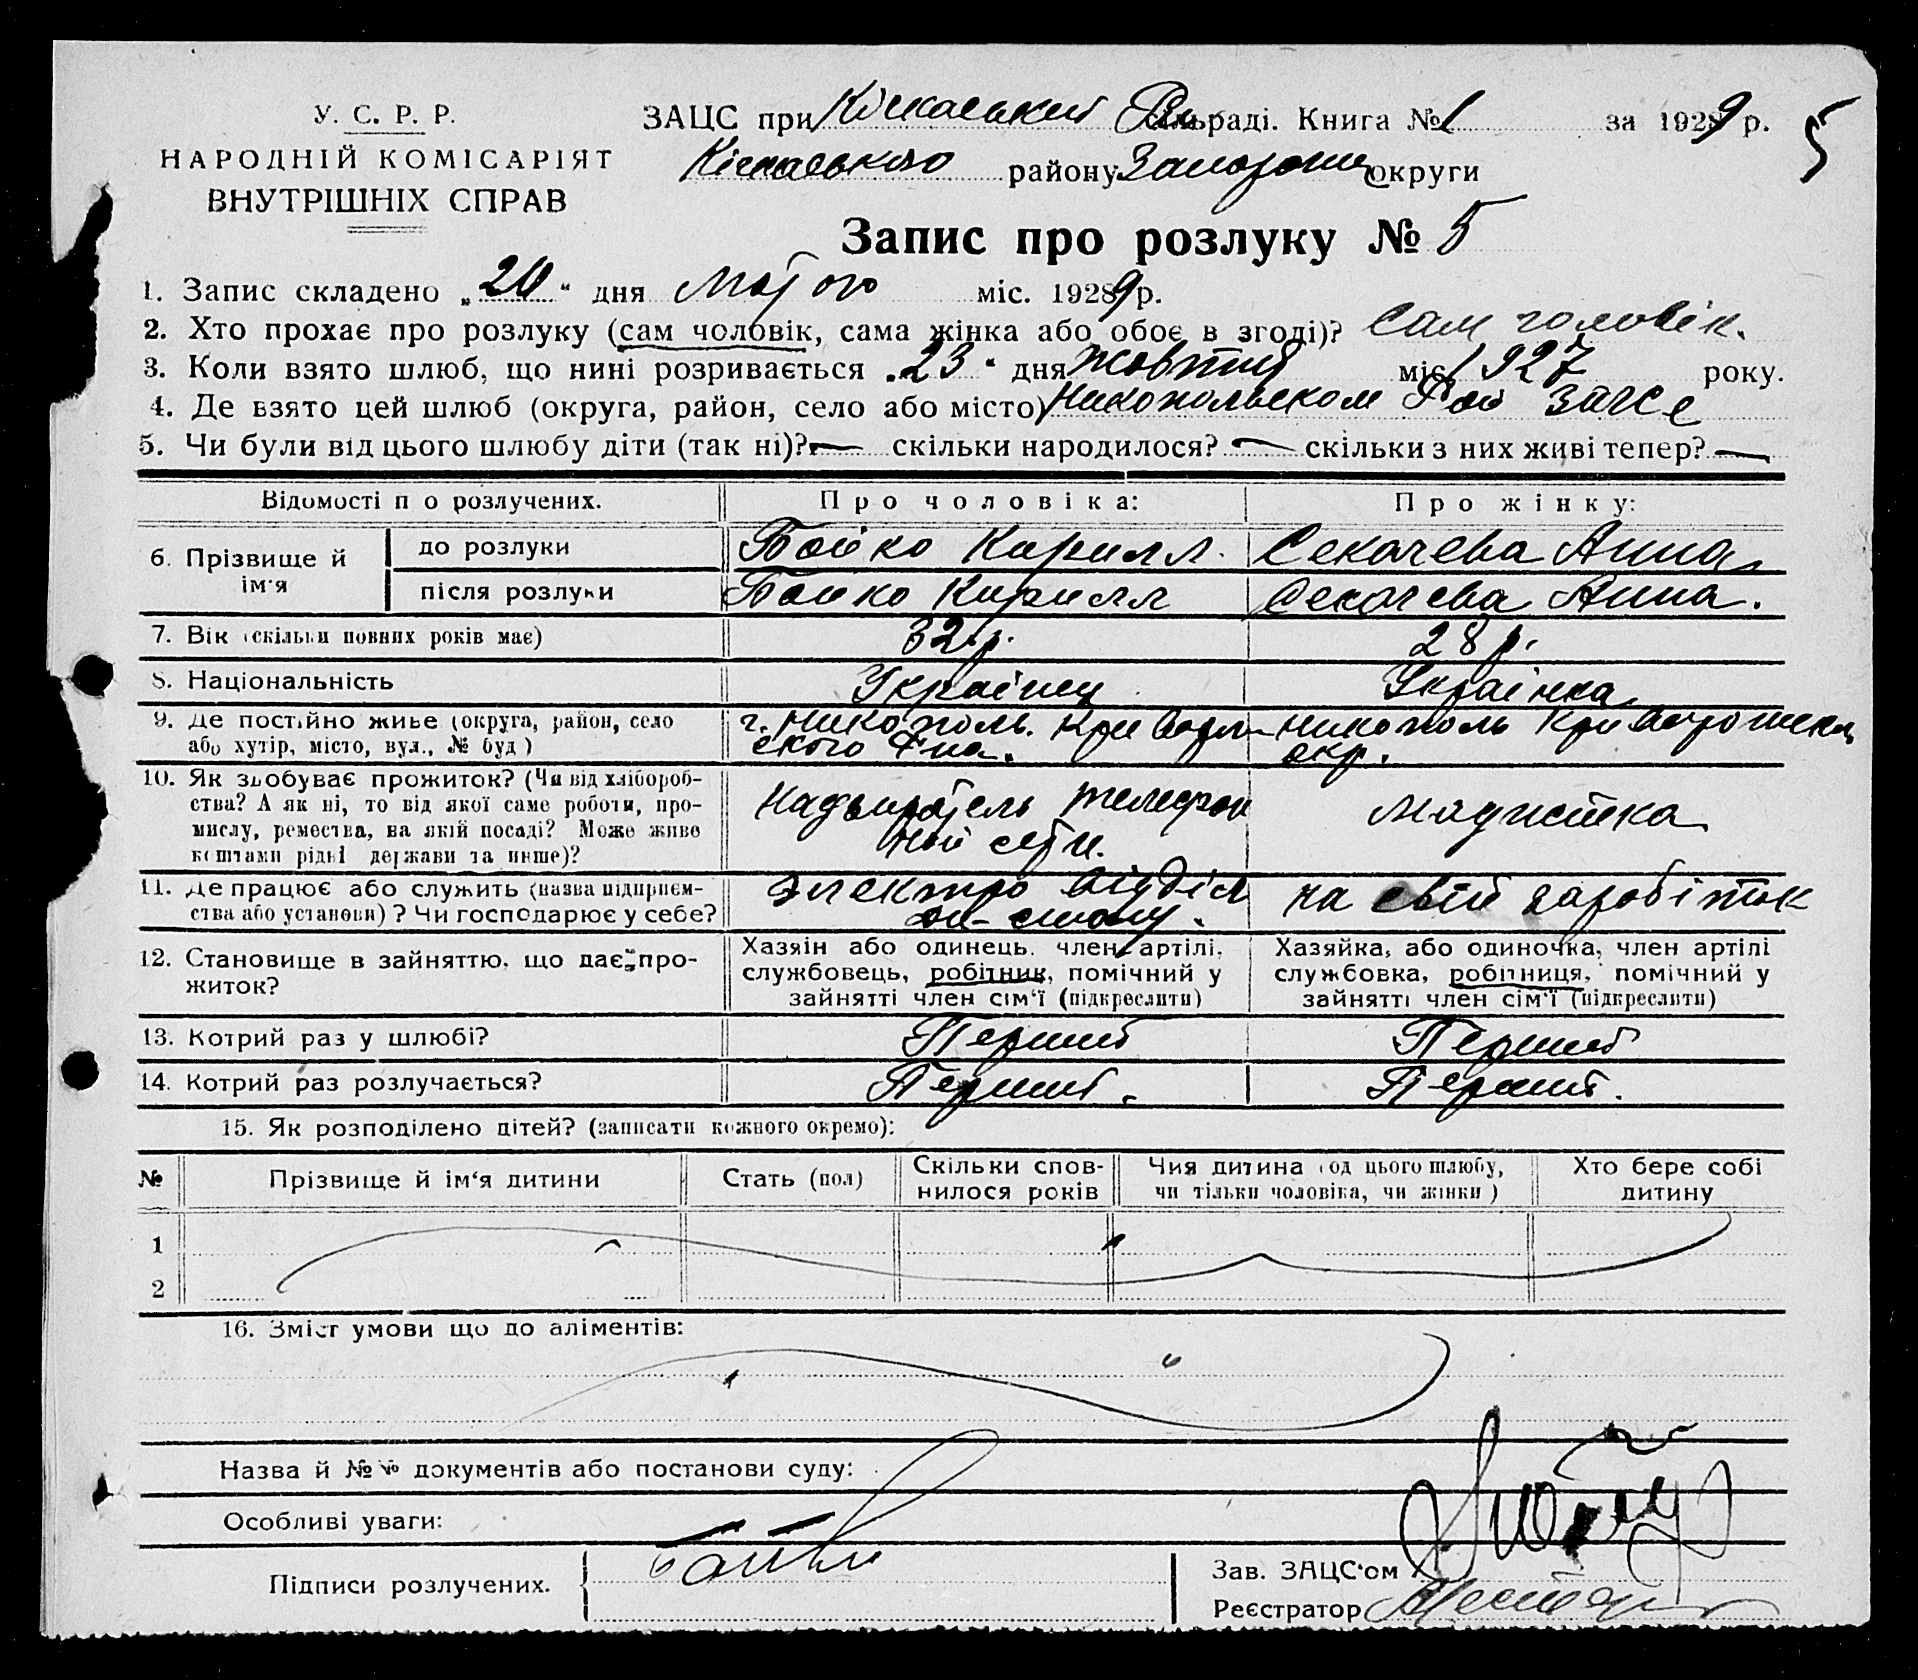 У. С. Р. Р.
НАРОДНІЙ КОМІСАРІЯТ
ВНУТРІШНІХ СПРАВ
ЗАЦС при Кічкаський сільраді. Книга № 1 за 1929 р.
5
Кічкаського району Запорож округи
Запис про розлуку № 5
1. Запис складено „20“ дня лютого міс. 1929 р.
2. Хто прохає про розлуку (сам чоловік, сама жінка або обоє в згоді)? Сам чоловік.
3. Коли взято шлюб, що нині розривається „23“ дня жовтня міс. 1927 року.
4. Де взято цей шлюб (округа, район, село або місто) Никопольском Рай ЗАГСе
5. Чи були від цього шлюбу діти (так ні)? — скільки народилося? — скільки з них живі тепер? —
Відомості п о розлучених. Про чоловіка: Про жінку:
6. Прізвище й ім'я до розлуки Бойко Кирилл. Секачева Анна
після розлуки Бойко Кирилл Секачева Анна.
7. Вік (скільки повних років має) 32 р. 28 р.
8. Національність Українец Українка
9. Де постійно живе (округа, район, село або хутір, місто, вул., № буд) г. Никополь. Криворож- Никополь Криворожск
ского окр.
10. Як здобуває прожиток? (Чи від хлібороб-
ства? А як ні, то від якої саме роботи, про-
мислу, ремества, на якій посаді? Може живе
коштами рідні держави та инше)?
Надзиратель телефон
ной сети.
Модистка
11. Де працює або служить (назва підприєм-
ства або установи)? Чи господарює у себе?
Электро відділ
на свій заробіток
12. Становище в зайняттю, що дає про-
житок?
Хазяін або одинець, член артілі,
службовець, робітник, помічний у
зайнятті член сім'ї (підкреслити)
Хазяйка, або одиночка, член артілі
службовка, робітниця, помічний у
зайнятті член сім'ї (підкреслити)
13. Котрий раз у шлюбі? Перший Перший
14. Котрий раз розлучається? Перший. Перший.
15. Як розподілено дітей? (записати кожного окремо):
№ Прізвище й ім'я дитини Стать (пол) Скільки спов-
нилося років Чия дитина (од цього шлюбу,
чи тільки чоловіка, чи жінки) Хто бере собі
дитину
1
2
16. Зміст умови що до аліментів:
Назва й №№ документів або постанови суду:
Особливі уваги:
Підписи розлучених. Бойко
Зав. ЗАЦС'ом
Реєстратор